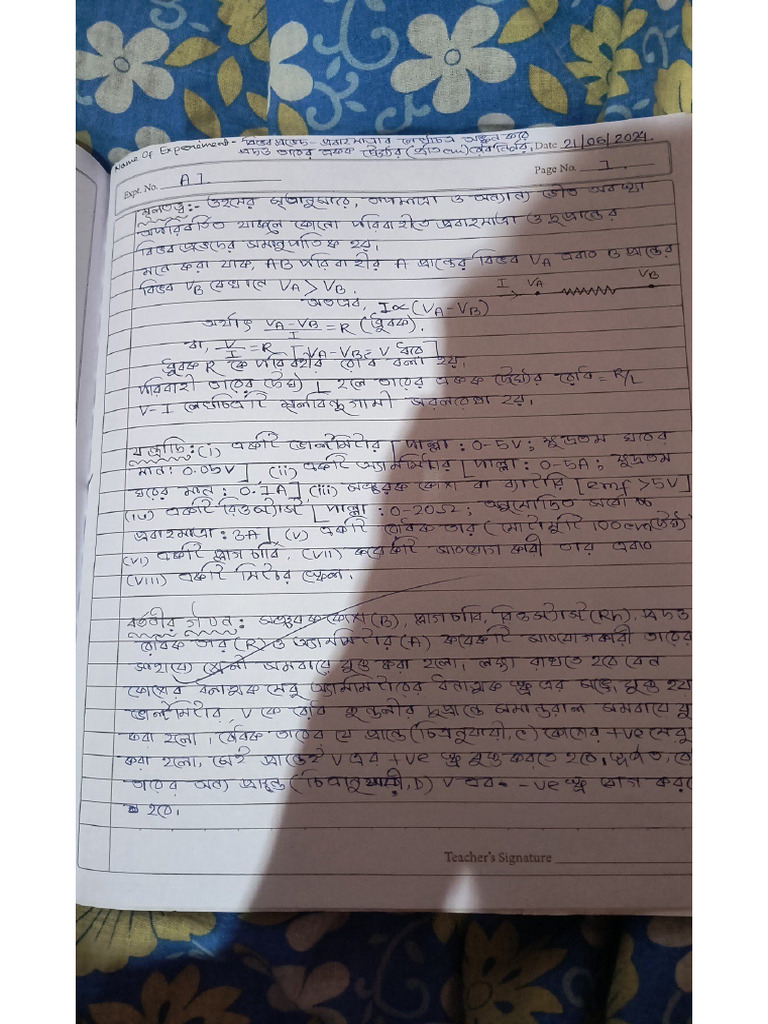 Name Of Experiment - বিভব প্রভেদ - প্রবাহমাত্রার লেখচিত্র অঙ্কন করে
প্রদত্ত তারের একক দৈর্ঘ্যের (প্রতি cm) রোধ নির্ণয়, Date 21/06/2024.
Expt. No. A1 Page No. 1.
মূলতত্ত্ব:- ওহমের সূত্রানুসারে, তাপমাত্রা ও অন্যান্য ভৌত অবস্থা
অপরিবর্তিত থাকলে কোনো পরিবাহীতে প্রবাহমাত্রা ও দুপ্রান্তের
বিভব প্রভেদের সমানুপাতিক হয়।
মনে করা যাক, AB পরিবাহীর A প্রান্তের বিভব VA এবং B প্রান্তের
বিভব VB যেখানে VA > VB.
I VA VB
অতএব, I∝(VA-VB)
অর্থাৎ VA-VB/I = R (ধ্রুবক).
বা, V/I = R [VA-VB = V ধরে]
ধ্রুবক R কে পরিবাহীর রোধ বলা হয়।
পরিবাহী তারের দৈর্ঘ্য L হলে তারের একক দৈর্ঘ্যের রোধ = R/L
V-I লেখচিত্রটি মূলবিন্দুগামী সরলরেখা হয়।
যন্ত্রপাতি: (i) একটি ভোল্টমিটার [পাল্লা : 0-5V; ক্ষুদ্রতম ঘরের
মান: 0.05V], (ii) একটি অ্যামমিটার [পাল্লা : 0-5A; ক্ষুদ্রতম
ঘরের মান : 0.1A], (iii) সঞ্চয়ক কোশ বা ব্যাটারি [emf >5V]
(iv) একটি রিওস্ট্যাট [পাল্লা : 0-20Ω; অনুমোদিত সর্বোচ্চ
প্রবাহমাত্রা: 3A] (v) একটি রোধক তার (মোটামুটি 100cm দৈর্ঘ্য)
(vi) একটি প্লাগ চাবি, (vii) কয়েকটি সংযোগকারী তার এবং
(viii) একটি মিটার স্কেল.
বর্তনীর গঠন: সঞ্চয়ক কোশ (B), প্লাগ চাবি, রিওস্ট্যাট (Rh), প্রদত্ত
রোধক তার (R) ও অ্যামমিটার (A) কয়েকটি সংযোগকারী তারের
সাহায্যে শ্রেণী সমবায়ে যুক্ত করা হলো। লক্ষ্য রাখতে হবে যেন
কোশের ধনাত্মক মেরু অ্যামমিটারের ধনাত্মক স্ক্রু এর সঙ্গে যুক্ত হয়
ভোল্টমিটার, V কে রোধ কুণ্ডলীর দুপ্রান্তে সমান্তরাল সমবায়ে যু
করা হলো। রোধক তারের যে প্রান্তে (চিত্রানুযায়ী, C) কোশের +ve মেরু
করা হলো, সেই প্রান্তেই V এর +ve স্ক্রু যুক্ত করতে হবে।
তারের অন্য প্রান্তে (চিত্রানুযায়ী, D) V এর -ve স্ক্রু যোগ করতে
হবে।
Teacher's Signature